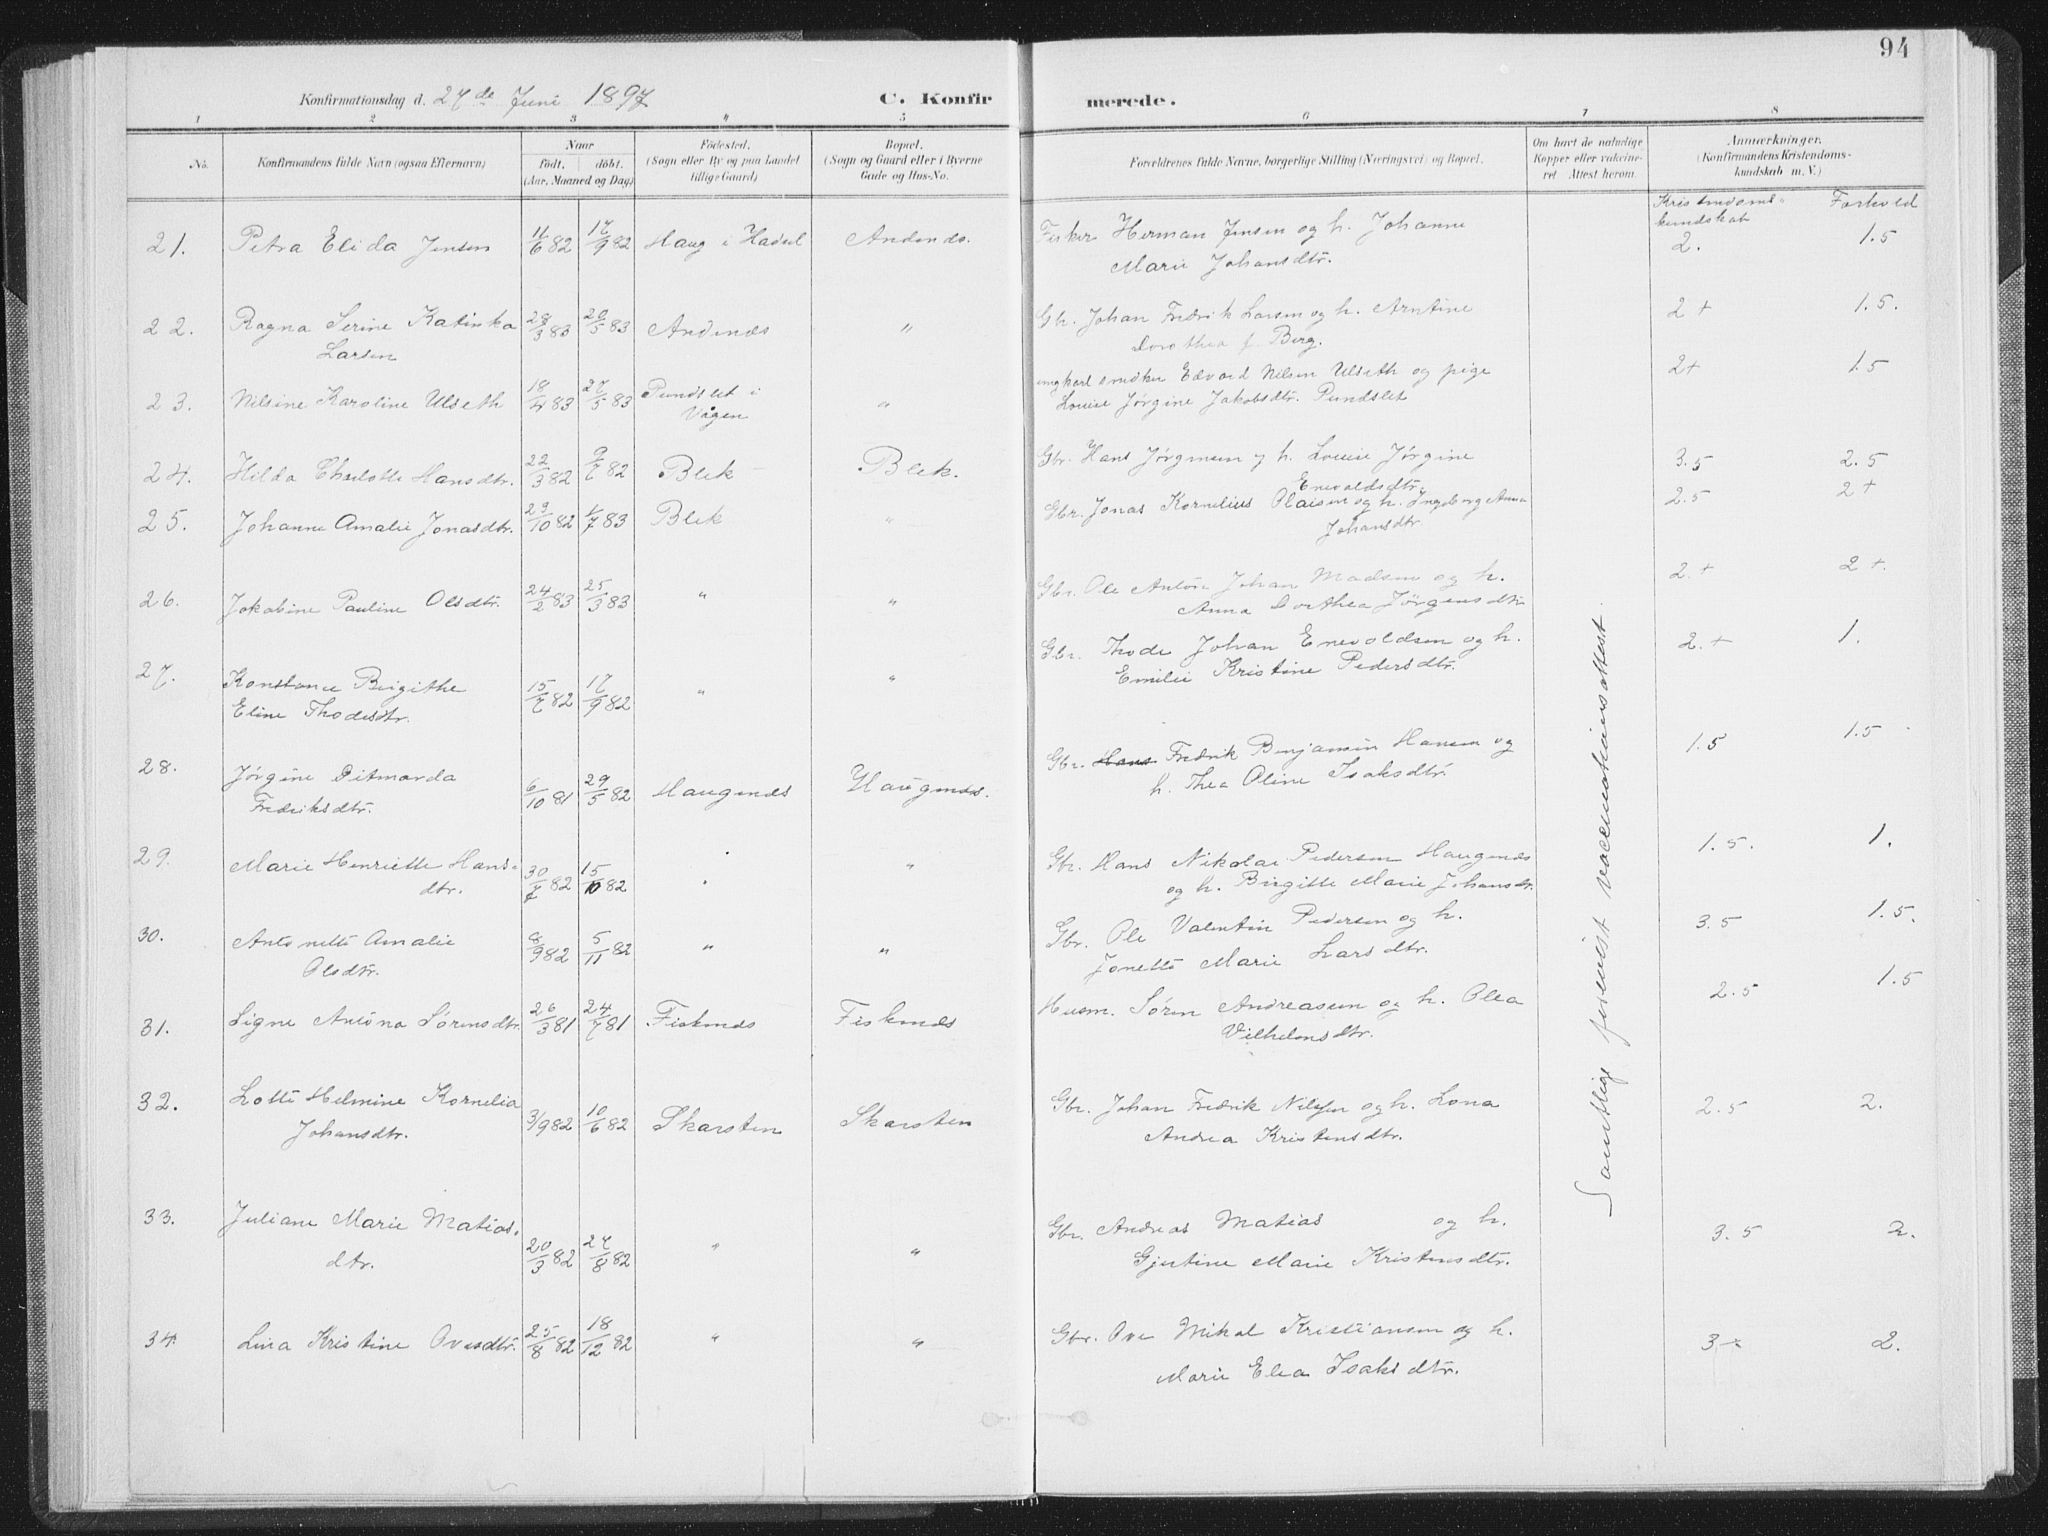 94
Konfirmationsdag d. 27de Juni 1897
C. Konfirmerede.
1 2 3 4 5 6 7 8
No.
Konfirmandens fulde Navn (ogsaa Efternavn)
Naar
födt, döbt.
(Aar, Maaned og Dag)
Födested.
(Sogn eller By og paa Landet
tillige Gaard)
Bopæl.
(Sogn og Gaard eller i Byerne
Gade og Hus-No.
Forældrenes fulde Navne, borgerlige Stilling (Næringsvei) og Bopæl.
Om havt de naturlige
Kopper eller vakcine-
ret Attest herom.
Anmærkninger.
(Konfirmandens Kristendoms-
kundskab m. V.)
Kristendoms-
kundskab
Forhold
21. Petra Elida Jensen 11/6 82 17/9 82 Haug i Hadsel Andenæs. Fisker Herman Jensen og h. Johanne 2. 1.5
Marie Johansdtr.
22. Ragna Serine Katinka 28/3 83 20/5 83 Andenæs " Gbr. Johan Fredrik Larsen og h. Arntine 2+ 1.5.
Larsen
Dorothea f. Berg.
23. Nilsine Karoline Ulseth 18/4 83 27/5 83 Pundslet i " ungkarl snedker Edvard Nilsen Ulseth og pige 2+ 1.5
Vågen
Louise Jørgine Jakobsdtr. Pundslet
24. Hilda Charlotte Hansdtr. 22/3 82 9/7 82 Blek Blek. Gbr. Hans Jørgensen og h. Louise Jørgine 3.5 2.5
Enevoldsdtr.
25. Johanne Amalie Jonasdtr. 29/10 82 1/7 83 Blek " Gbr. Jonas Kornelius Olaisen og h. Ingeborg Anna 2.5 2+
Johansdtr.
26. Jakobine Pauline Olsdtr. 24/2 83 25/3 83 " " Gbr. Ole Anton Johan Madsen og h. 2.+ 2+.
Anna Dorthea Jørgensdtr
27. Konstance Birgithe 15/7 82 17/9 82 " " Gbr. Thode Johan Enevoldsen og h. 2.+ 1.
Eline Thodesdtr.
Emilie Kristine Pedersdtr.
28. Jørgine Ditmarda 6/10 81 29/5 82 Haugenæs Haugenæs. Gbr. Hans Fredrik Benjamin Hansen og 1.5 1.5
Fredriksdtr.
h. Thea Oline Isaksdtr.
29. Marie Henriette Hans- 30/7 82 15/10 82 " " Gbr. Hans Nikolai Pedersen Haugenæs 1.5. 1.
dtr.
og h. Birgitte Marie Johansdtr.
30. Antonette Amalie 8/9 82 5/11 82 " " Gbr. Ole Valentin Pedersen og h. 3.5 1.5.
Olsdtr.
Jonette Marie Larsdtr.
31. Signe Antona Sørensdtr. 26/3 81 24/7 81 Fiskenæs Fiskenæs Husm. Søren Andreassen og h. Olea 2.5 1.5
Vilhelmsdtr.
32. Lotte Helmine Kornelia 3/9 82 10/6 82 Skarsten Skarsten Gbr. Johan Fredrik Nilsen og h. Lona 2.5 2.
Johansdtr.
Andrea Kristensdtr.
33. Juliane Marie Matias- 20/3 82 27/8 82 " " Gbr. Andreas Matias og h. 3.5 2.
dtr.
Gjertine Marie Kristensdtr.
34. Lina Kristine Ovesdtr. 25/8 82 18/12 82 " " Gbr. Ove Mikal Kristiansen og h. 3 2.
Marie Elea Isaksdtr.
Samtlige forevist vaccinationsattest.